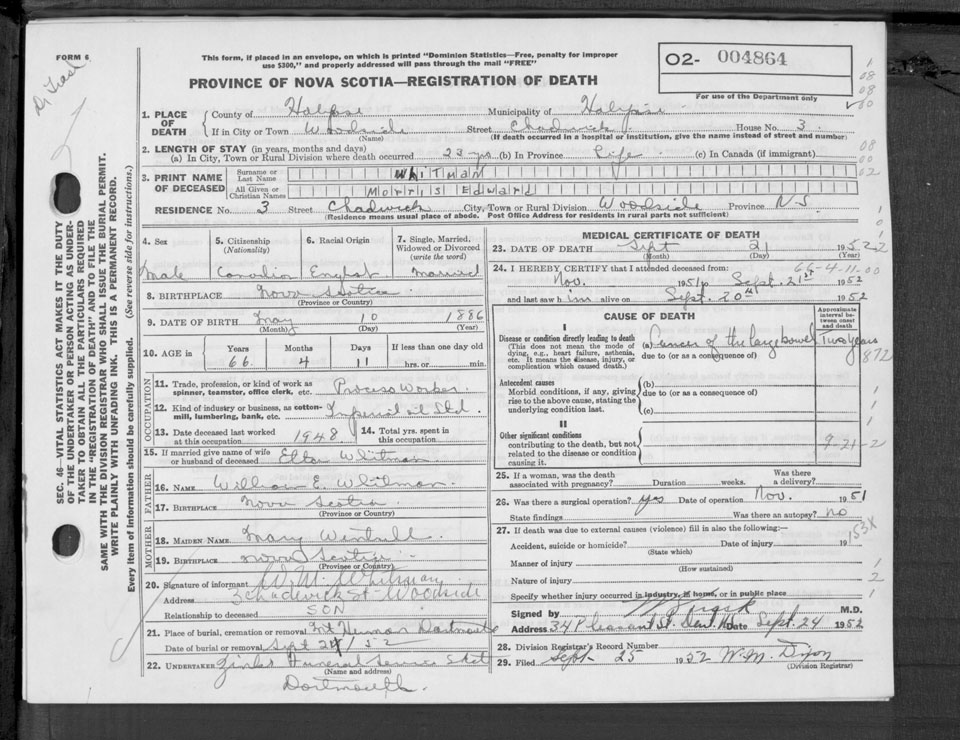 FORM 6
This form, if placed in an envelope, on which is printed "Dominion Statistics—Free, penalty for improper
use $300," and properly addressed will pass through the mail "FREE"
PROVINCE OF NOVA SCOTIA—REGISTRATION OF DEATH
O2- 004864
For use of the Department only
SEC. 46—VITAL STATISTICS ACT MAKES IT THE DUTY
OF THE UNDERTAKER OR PERSON ACTING AS UNDER-
TAKER TO OBTAIN ALL THE PARTICULARS REQUIRED
IN THE "REGISTRATION OF DEATH" AND TO FILE THE
SAME WITH THE DIVISION REGISTRAR WHO SHALL ISSUE THE BURIAL PERMIT.
WRITE PLAINLY WITH UNFADING INK. THIS IS A PERMANENT RECORD.
Every item of information should be carefully supplied. (See reverse side for instructions.)
1. PLACE OF DEATH
County of Halifax Municipality of Halifax
If in City or Town Woodside Street Chadwick House No. 3
(Name) (If death occurred in a hospital or institution, give the name instead of street and number)
2. LENGTH OF STAY (in years, months and days)
(a) In City, Town or Rural Division where death occurred 23 yrs (b) In Province Life (c) In Canada (if immigrant)
3. PRINT NAME OF DECEASED
Surname or Last Name WHITMAN
All Given or Christian Names Morris Edward
RESIDENCE No. 3 Street Chadwick City, Town or Rural Division Woodside Province N S
(Residence means usual place of abode. Post Office Address for residents in rural parts not sufficient)
4. Sex Male
5. Citizenship (Nationality) Canadian
6. Racial Origin English
7. Single, Married, Widowed or Divorced (write the word) Married
8. BIRTHPLACE Nova Scotia
(Province or Country)
9. DATE OF BIRTH May 10 1886
(Month) (Day) (Year)
10. AGE in Years 66 Months 4 Days 11 If less than one day old hrs. or min.
OCCUPATION
11. Trade, profession, or kind of work as spinner, teamster, office clerk, etc. Process Worker
12. Kind of industry or business, as cotton-mill, lumbering, bank, etc. Imperial Oil Ltd.
13. Date deceased last worked at this occupation 1948
14. Total yrs. spent in this occupation
15. If married give name of wife or husband of deceased Whitman
FATHER
16. NAME William E. Whitman
17. BIRTHPLACE Nova Scotia
(Province or Country)
MOTHER
18. MAIDEN NAME Mary
19. BIRTHPLACE Nova Scotia
(Province or Country)
20. Signature of informant Whitman
Address 3 Chadwick St Woodside
Relationship to deceased SON
21. Place of burial, cremation or removal Mt Herman Dartmouth
Date of burial or removal Sept 24/52
22. UNDERTAKER Funeral Service
(Name and address)
Dartmouth.
MEDICAL CERTIFICATE OF DEATH
23. DATE OF DEATH Sept 21 1952
(Month) (Day) (Year)
66-4-11
24. I HEREBY CERTIFY that I attended deceased from:
Nov. 1951 to Sept. 21st 1952
and last saw him alive on Sept. 20th 1952
CAUSE OF DEATH
Approximate interval between onset and death
I
Disease or condition directly leading to death
(This does not mean the mode of dying, e.g., heart failure, asthenia, etc. It means the disease, injury, or complication which caused death.)
(a) Cancer of the large bowel Two Years
due to (or as a consequence of)
Antecedent causes
Morbid conditions, if any, giving rise to the above cause, stating the underlying condition last.
(b)
due to (or as a consequence of)
(c)
II
Other significant conditions
contributing to the death, but not related to the disease or condition causing it.
9-21-2
25. If a woman, was the death associated with pregnancy? Duration weeks. Was there a delivery?
26. Was there a surgical operation? yes Date of operation Nov. 1951
State findings Was there an autopsy? no
27. If death was due to external causes (violence) fill in also the following:—
Accident, suicide or homicide? Date of injury 19
(State which)
Manner of injury
(How sustained)
Nature of injury
Specify whether injury occurred in industry, in home, or in public place
Signed by M.D.
Address 34 Pleasant St. Date Sept. 24 1952
28. Division Registrar's Record Number
29. Filed Sept. 25 1952 W. M. Dixon
(Division Registrar)